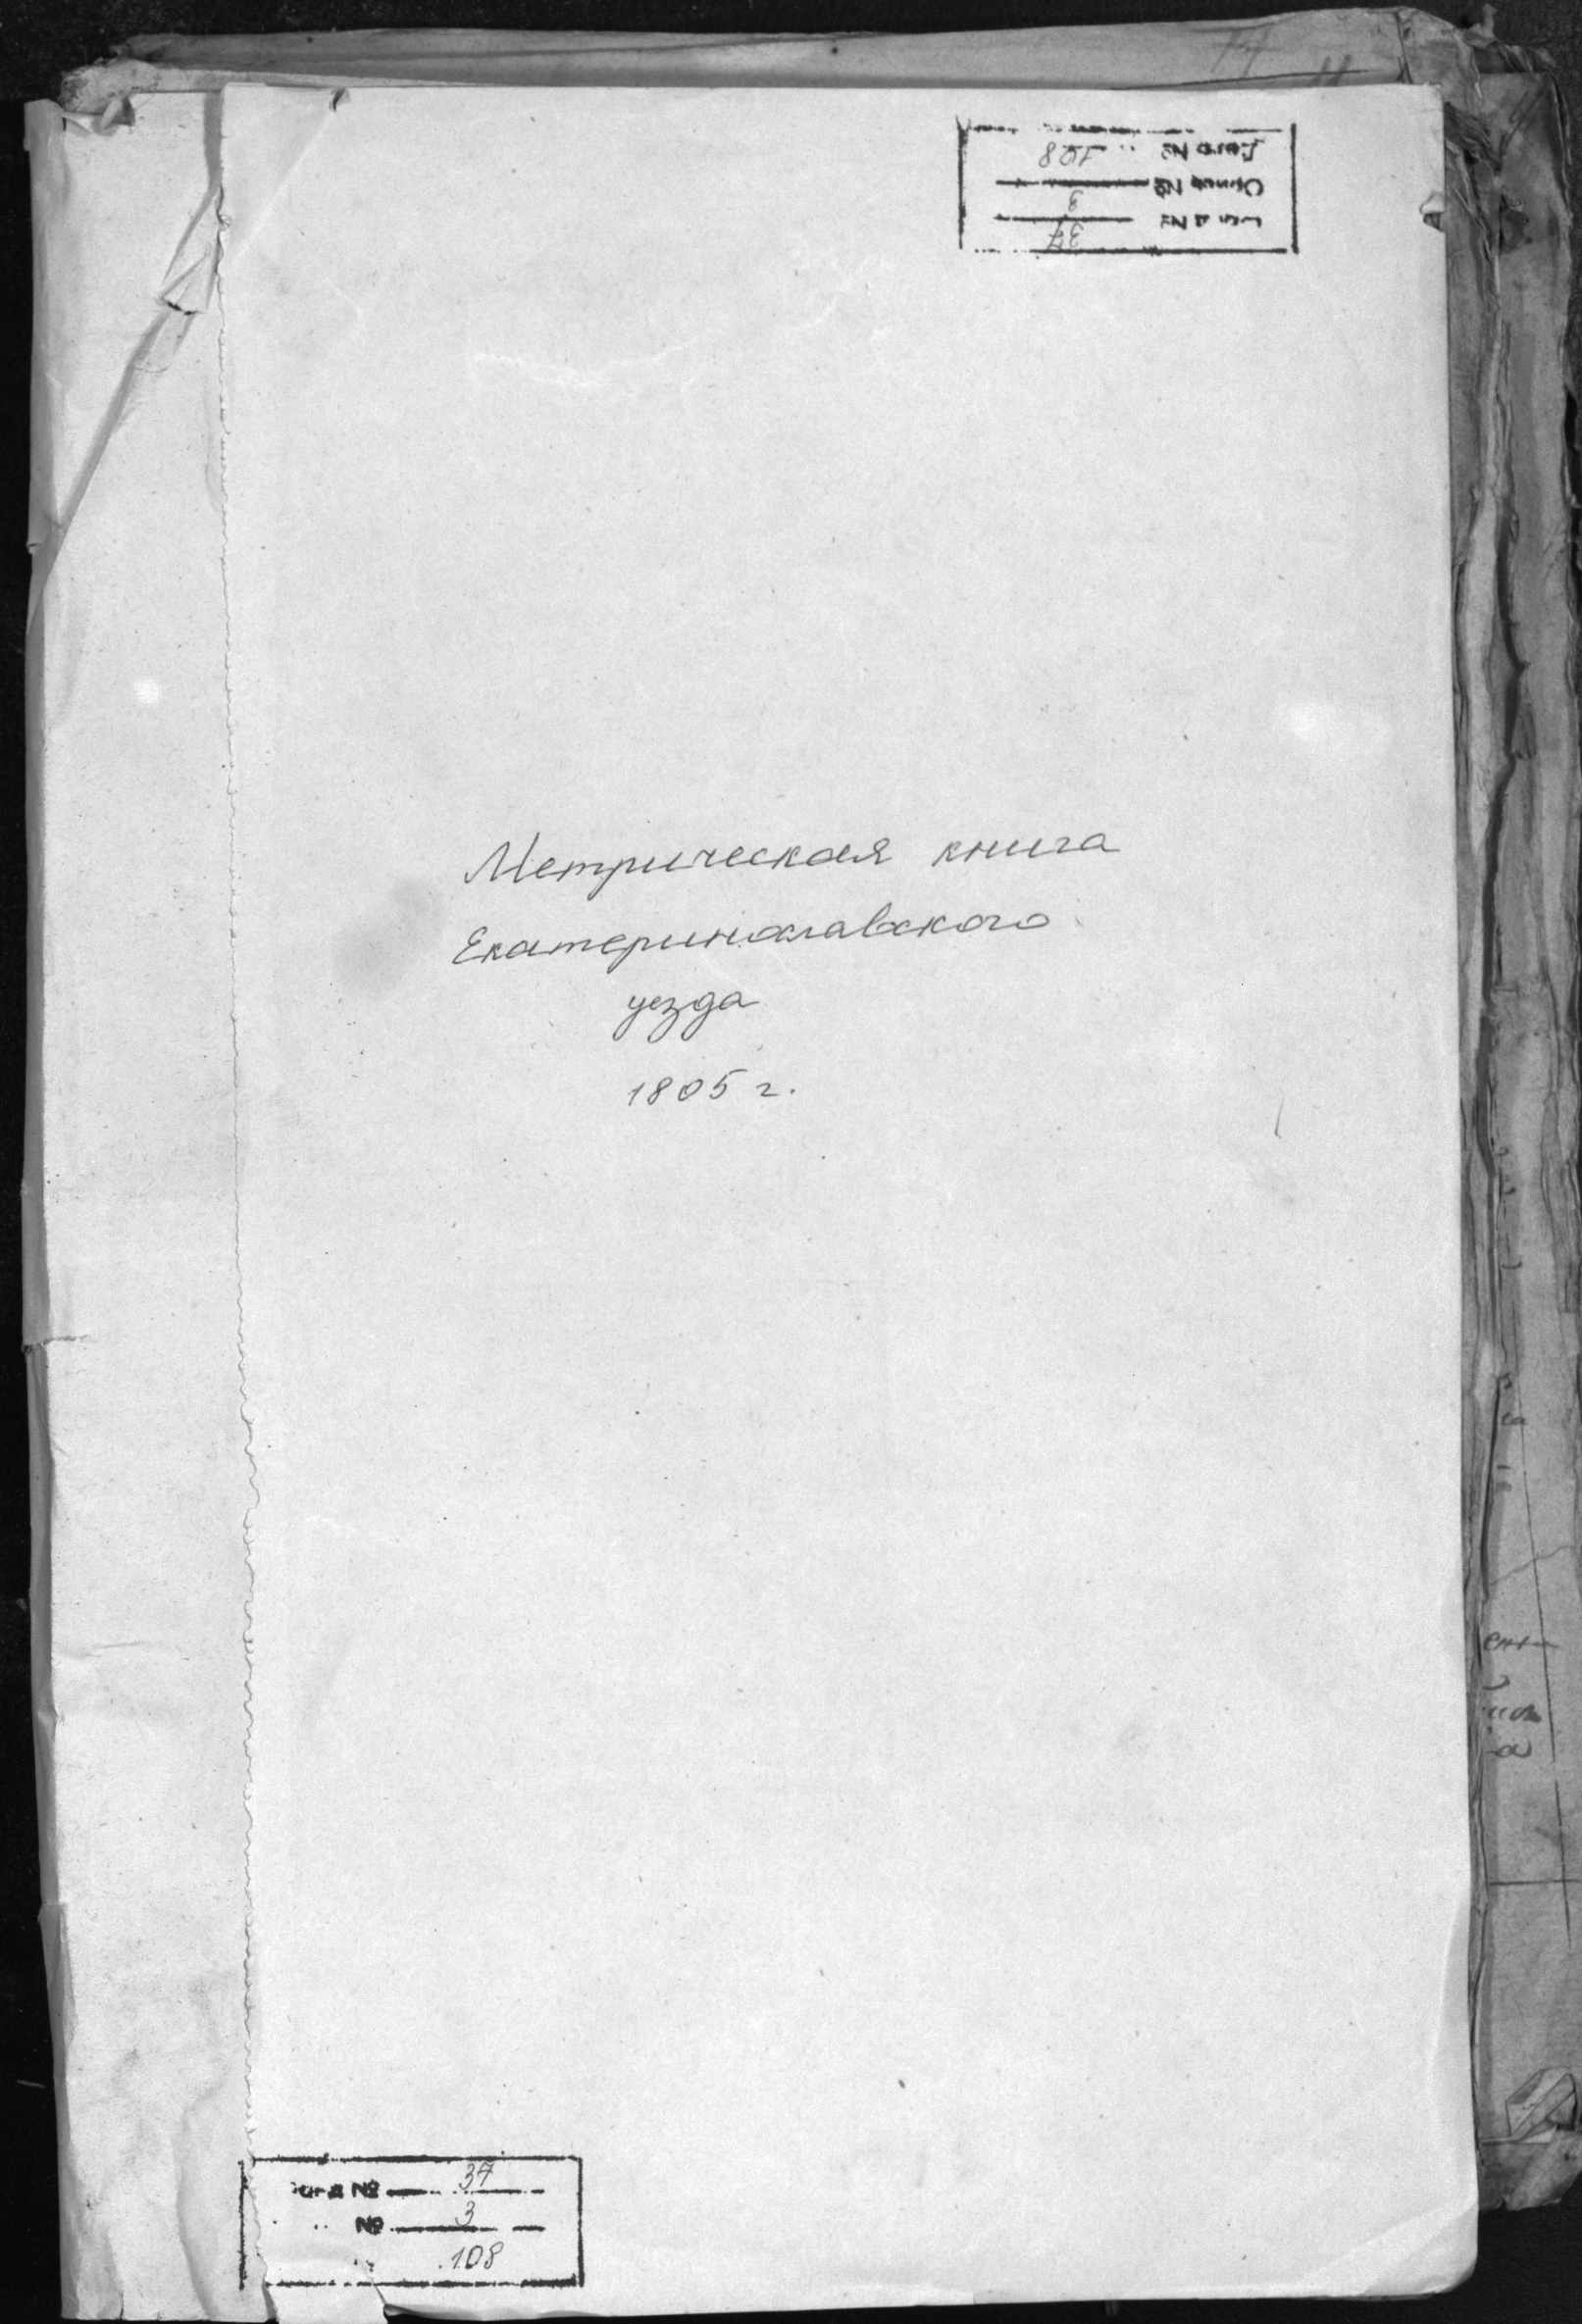 Фонд № 37
Опись № 3
Дело № 108
Метрическая книга
Екатеринославского
уезда
1805 г.
№ 37
№ 3
108